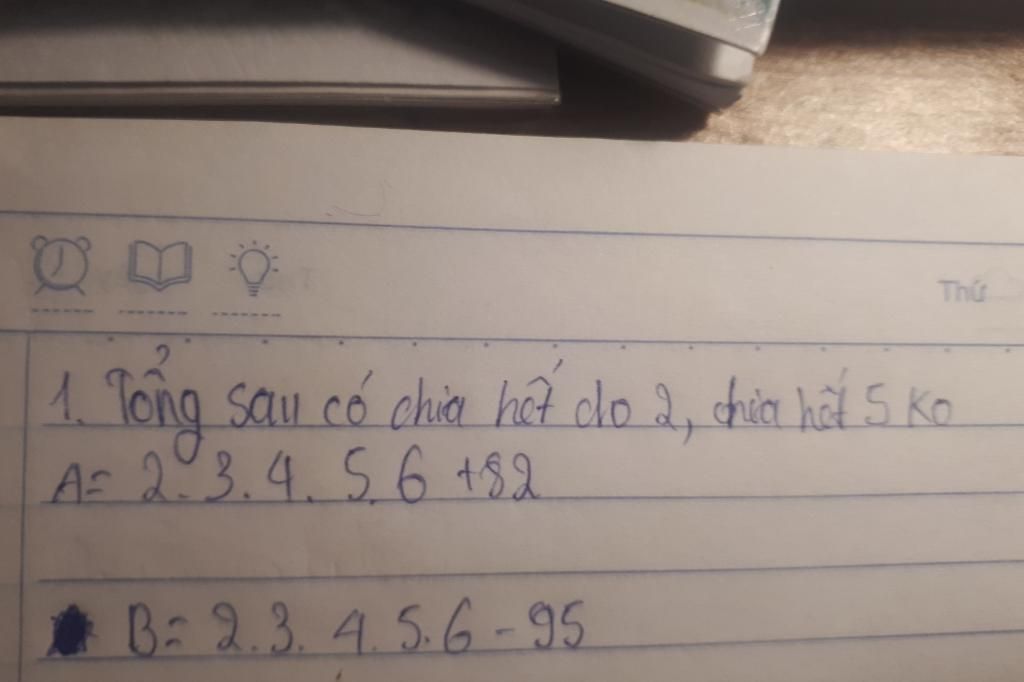 Thứ
1. Tổng sau có chia hết cho 2, chia hết 5 ko
A = 2.3.4.5.6 +82
B = 2.3.4.5.6 - 95